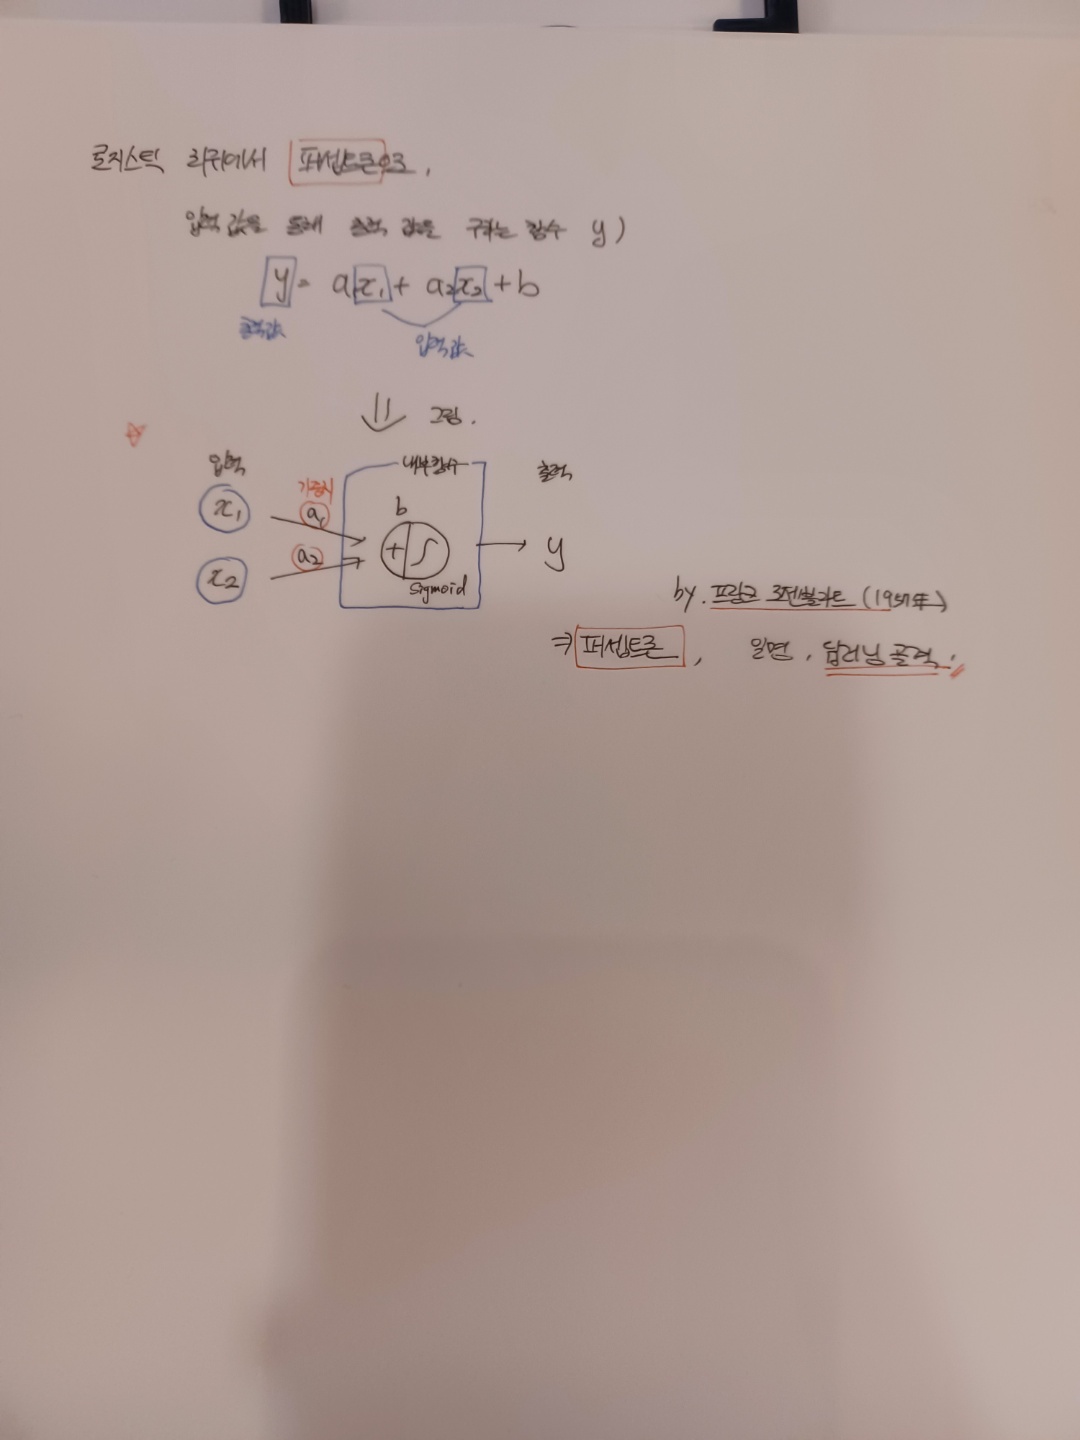 로지스틱 회귀에서 퍼셉트론으로,
입력 값을 통해 출력 값을 구하는 함수 y)
y = a₁x₁ + a₂x₂ + b
출력값
입력값
⇓ 그림.
입력 내부함수 출력
가중치
x₁ a₁ b
+ ∫ → y
x₂ a₂
Sigmoid
by. 프랑크 로젠블라트 (1957年)
⇒ 퍼셉트론, 일명, 딥러닝 골격.